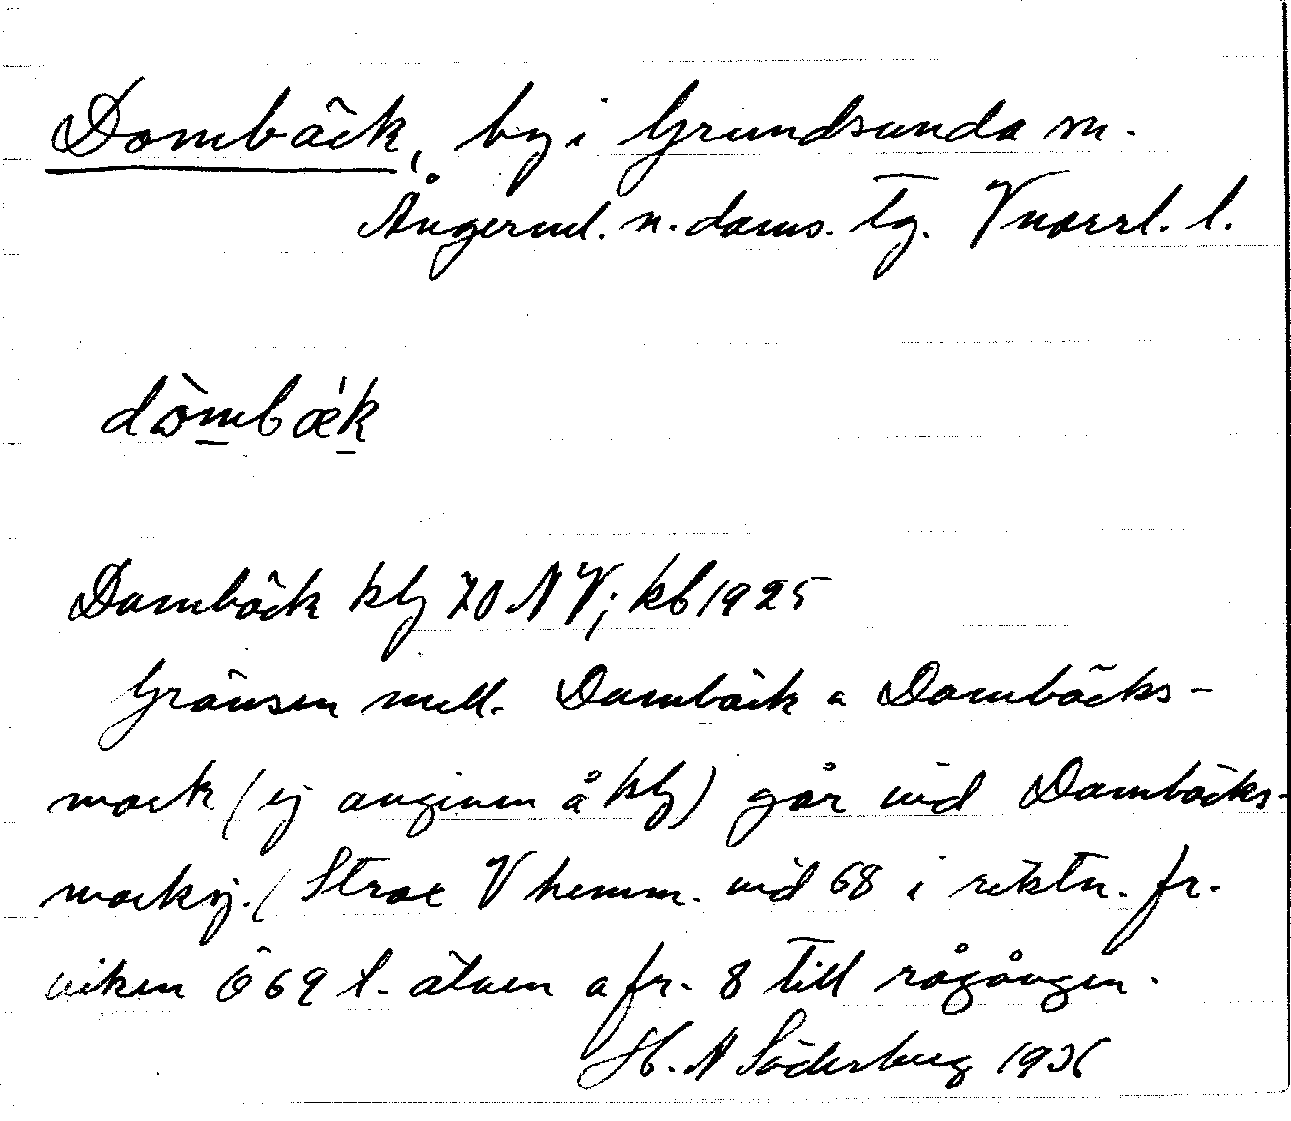 Dombäck, by i Grundsunda sn.
Ångerml. n. doms. tg. Vnorrl. l.
dòmbæ̀k
Dombäck klj 70 NV; kb 1925
Gränsen mell. Dombäck o Dombäcks-
mark (ej angiven å klj) går vid Dombäcks-
mark
Strax V hemm. vid 68 i riktn. fr.
viken Ö 69 t. älven o fr. 8 till rågången.
H. N Söderberg 1936